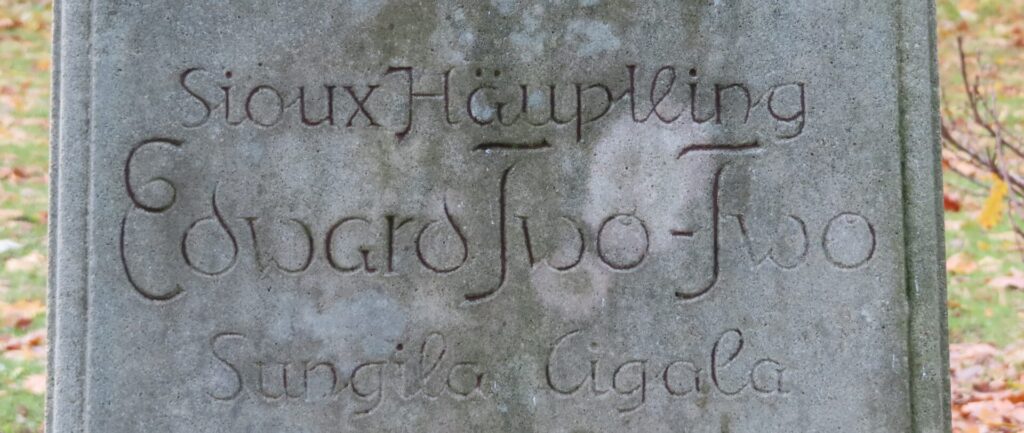 Sioux Häuptling
Edward Two-Two
Sungila Cigala